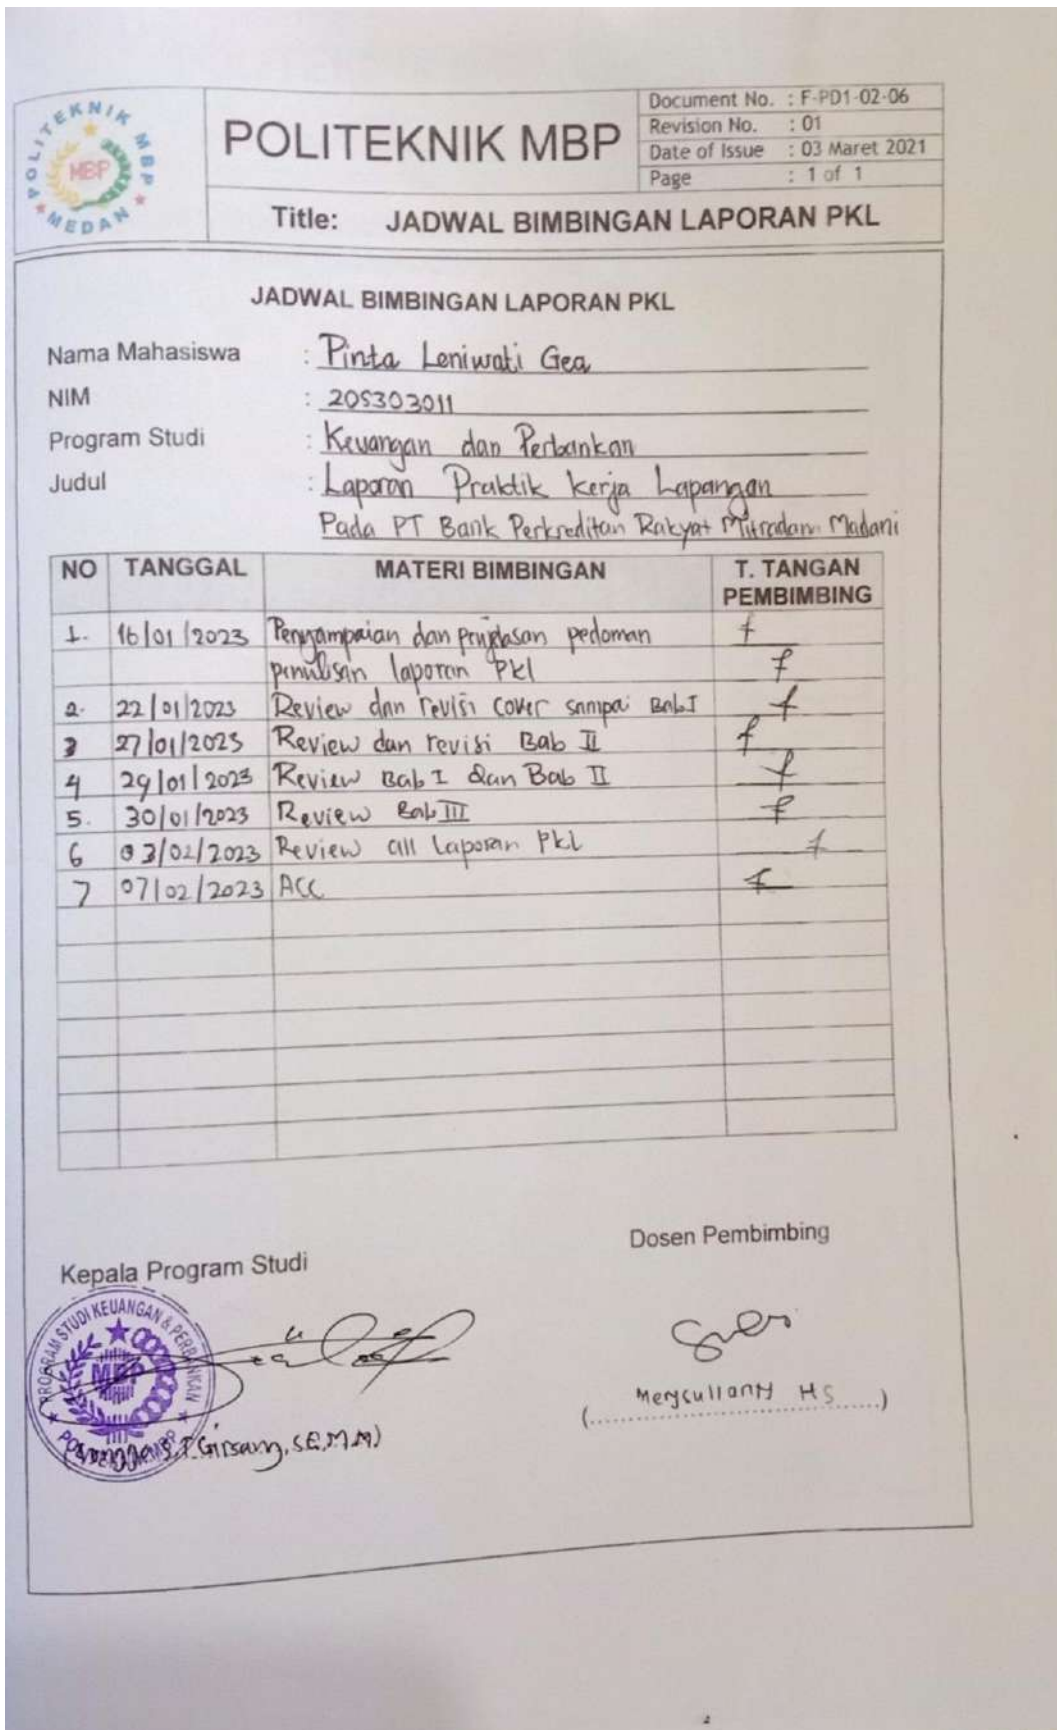 POLITEKNIK MBP MEDAN
MBP
POLITEKNIK MBP
Document No. : F-PD1-02-06
Revision No. : 01
Date of Issue : 03 Maret 2021
Page : 1 of 1
Title: JADWAL BIMBINGAN LAPORAN PKL
JADWAL BIMBINGAN LAPORAN PKL
Nama Mahasiswa : Pinta Leniwati Gea
NIM : 205303011
Program Studi : Keuangan dan Perbankan
Judul : Laporan Praktik Kerja Lapangan
Pada PT Bank Perkreditan Rakyat Mitradana Madani
NO TANGGAL MATERI BIMBINGAN T. TANGAN PEMBIMBING
1. 16/01/2023 Penyampaian dan penjelasan pedoman
penulisan laporan PKl
2. 22/01/2023 Review dan revisi cover sampai Bab I
3 27/01/2023 Review dan revisi Bab II
4 29/01/2023 Review Bab I dan Bab II
5. 30/01/2023 Review Bab III
6 03/02/2023 Review all laporan PKL
7 07/02/2023 ACC
Kepala Program Studi
Dosen Pembimbing
PROGRAM STUDI KEUANGAN & PERBANKAN
MBP
POLITEKNIK MBP
S.T Girsang, SE, M.M)
(Mersullanty HS)